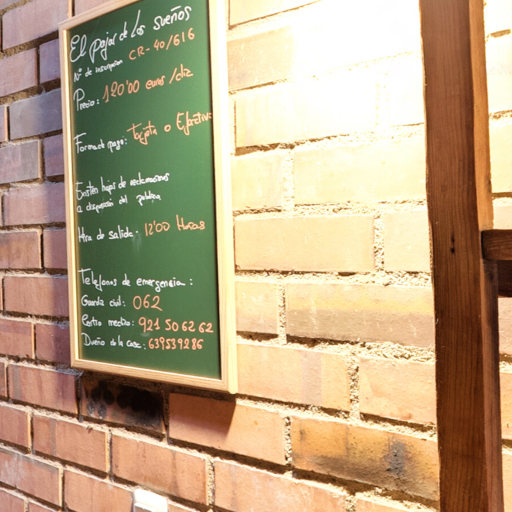 El pajar de los sueños
Nº de inscripcion CR-40/616
Precio: 120'00 euros/día
Forma de pago: Tarjeta o Efectivo
Existen hojas de reclamaciones
a disposición del público
Hora de salida: 12'00 Horas
Teléfonos de emergencia:
Guardia civil: 062
Centro medico: 921 50 62 62
Dueño de la casa: 639539286